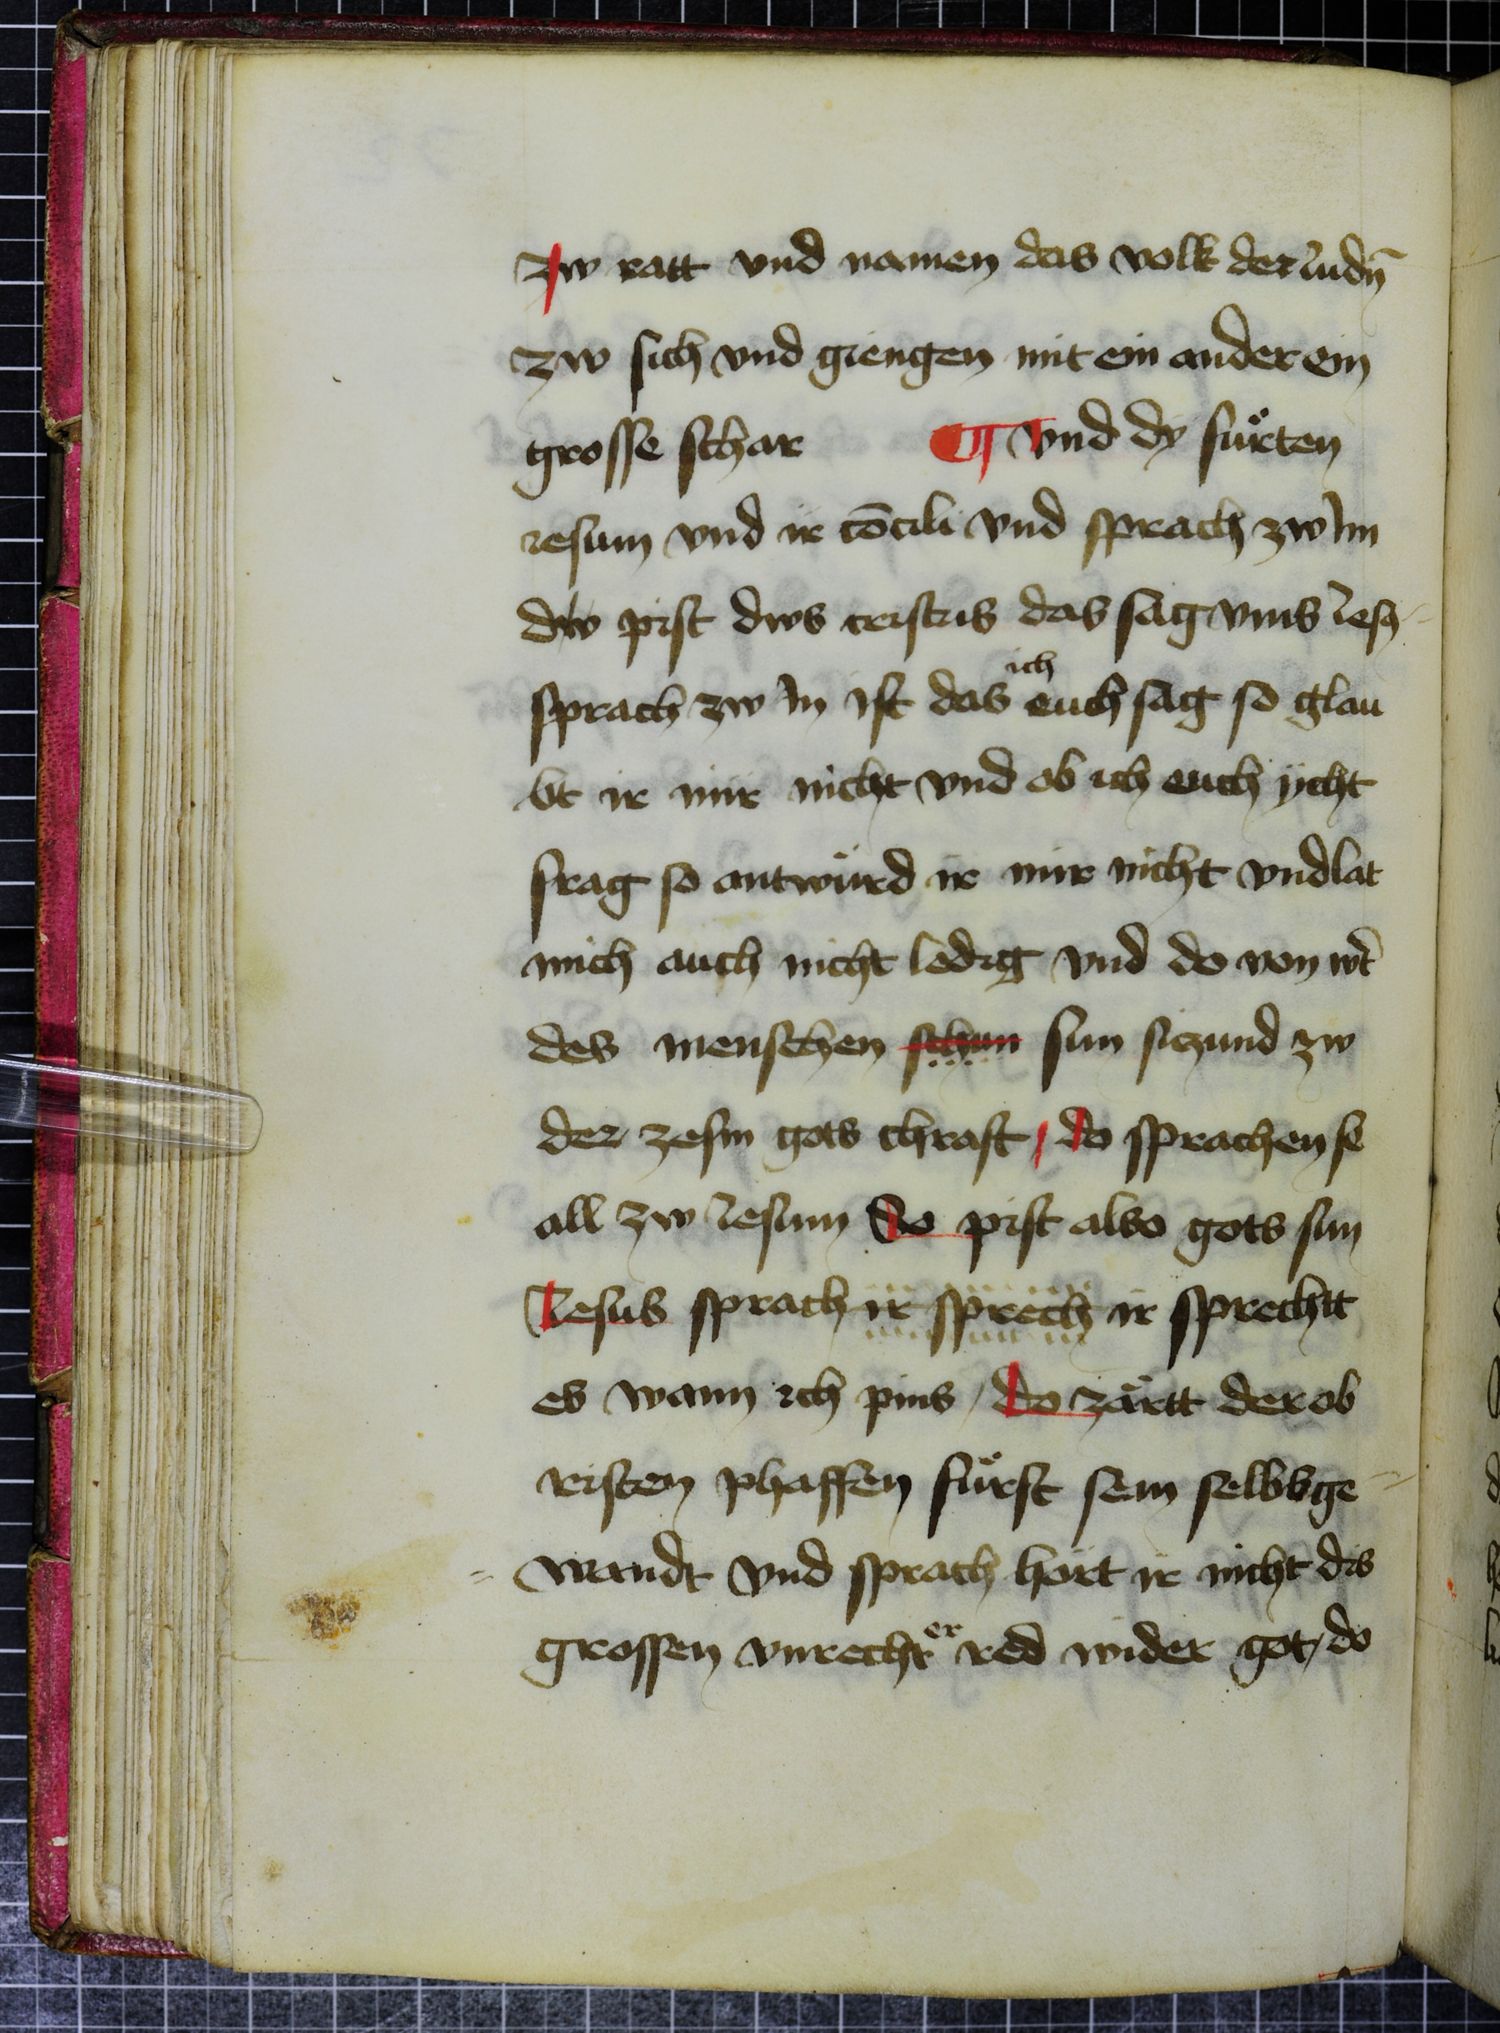 zw ratt vnd namen das volk der Iudn̄
zw sich vnd giengen mit ein ander ein
grosse schar ¶ Vnd dy fuͤrten
iesum vnd ir cōcili vnd sprach zw Im
dw pist dws cristus das sag vnns Ies9
sprach zw In ist das ich euch sag so glau
bt ir mir nicht vnd ob ich euch ÿcht
frag so antwuͤrd ir mir nicht vnd lat
mich auch nicht ledig vnd do von wt̄
des menschen schun sun siczund zw
der zesm gots chraft / do sprachen se
all zw Iesum Do pist also gots sun
Iesus sprach ir sprech ir sprechtt
es wann ich pins / do zärtt der ob
risten phaffen fuͤrst sein selbbge
wandt vnd sprach hort ir nicht dis
grossen vnrechter red wider got / do